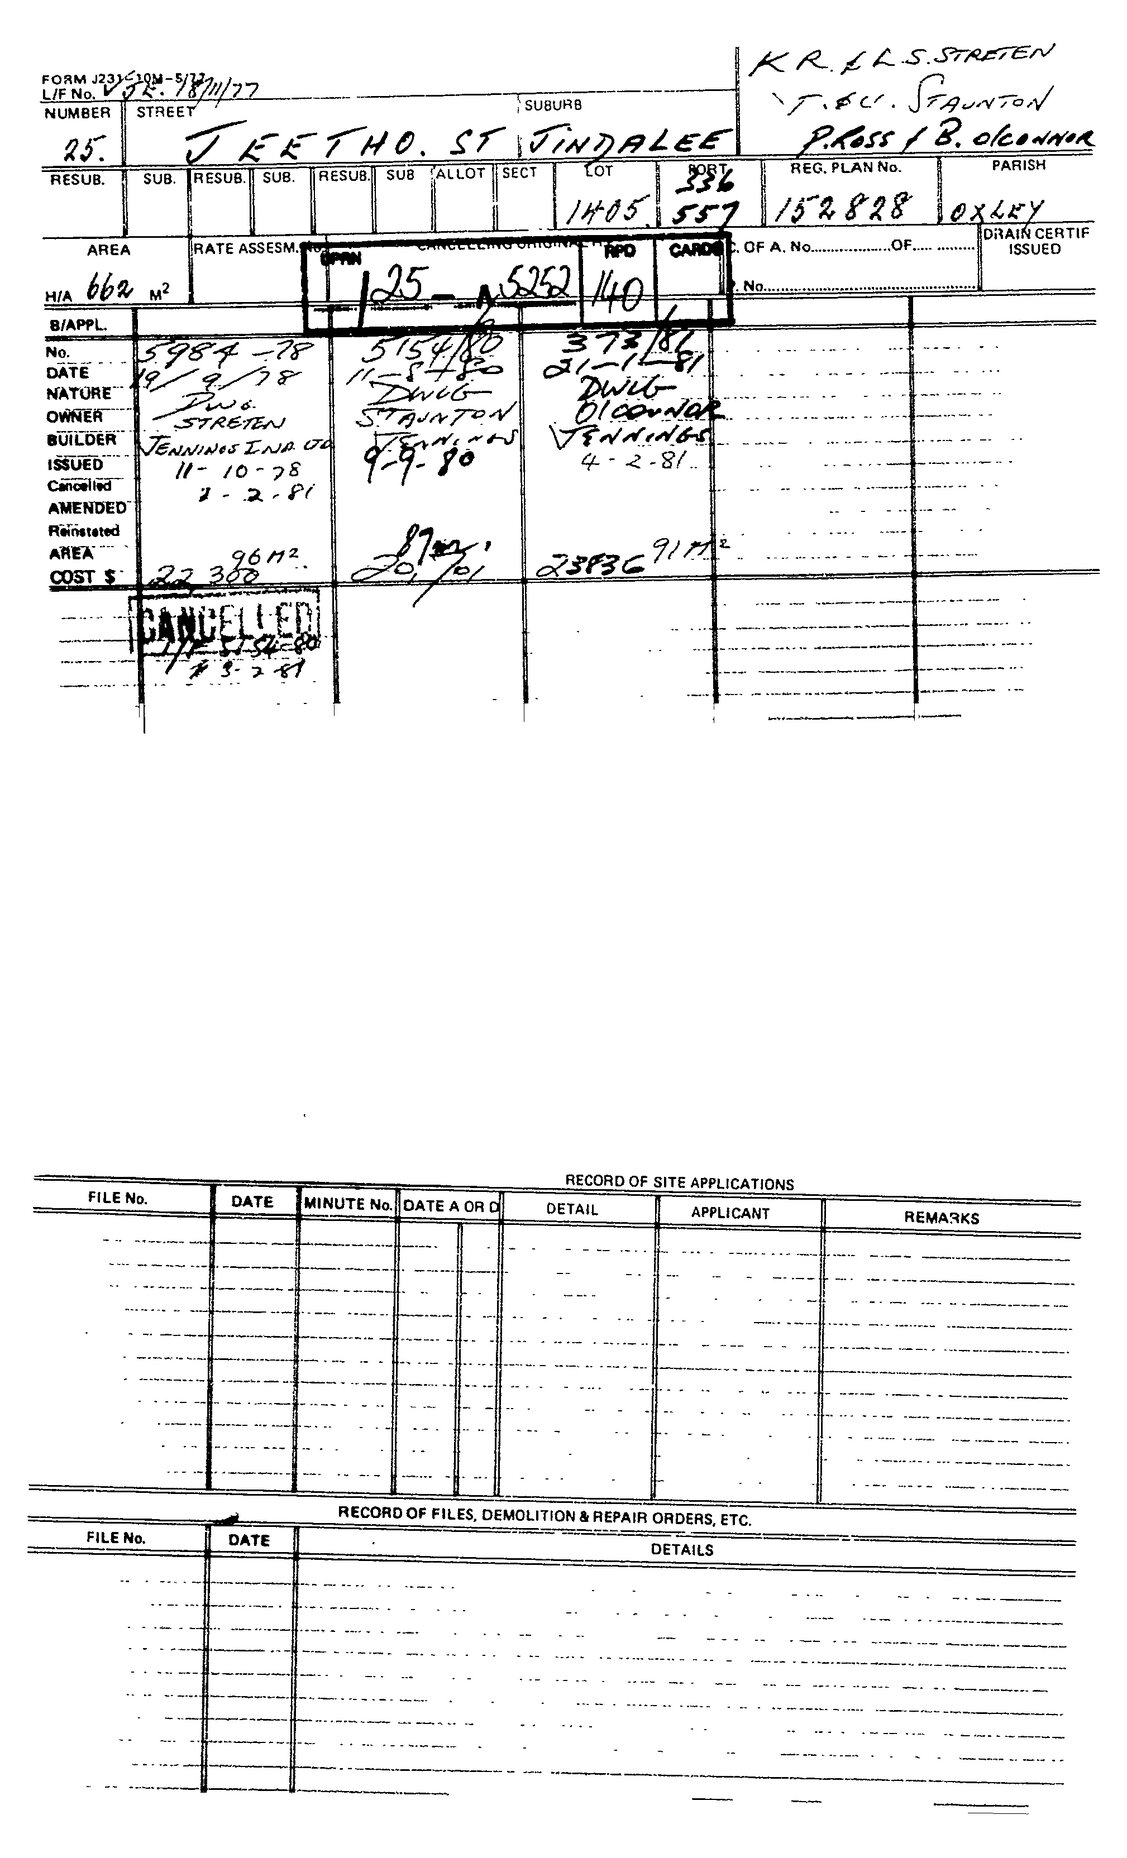 FORM J231-10M-5/77
L/F No. 18/11/77
K R. & L. S. STRETEN
T. & U. STAUNTON
P. ROSS & B. O'CONNOR
NUMBER STREET SUBURB
25. JEETHO. ST JINDALEE
RESUB. SUB. RESUB. SUB. RESUB. SUB ALLOT SECT LOT PORT REG. PLAN No. PARISH
336
1405 557 152828 OXLEY
AREA RATE ASSESM. No. CANCELLING ORIGINAL C. OF A. No. OF DRAIN CERTIF ISSUED
UPRN RPD CARDS
H/A 662 M² 125 - 5252 140 No.
B/APPL.
No. 5984-78 5154/80 373/81
DATE 19/9/78 11-8-80 21-1-81
NATURE DWG. DWLG DWLG
OWNER STRETEN STAUNTON O'CONNOR
BUILDER JENNINGS IND. LTD JENNINGS JENNINGS
ISSUED 11-10-78 9-9-80 4-2-81
Cancelled 2-2-81
AMENDED
Reinstated
AREA 96 M² 87m² 91 M²
COST $ 22,300 23836
CANCELLED
5154-80
3-2-81
RECORD OF SITE APPLICATIONS
FILE No. DATE MINUTE No. DATE A OR D DETAIL APPLICANT REMARKS
RECORD OF FILES, DEMOLITION & REPAIR ORDERS, ETC.
FILE No. DATE DETAILS